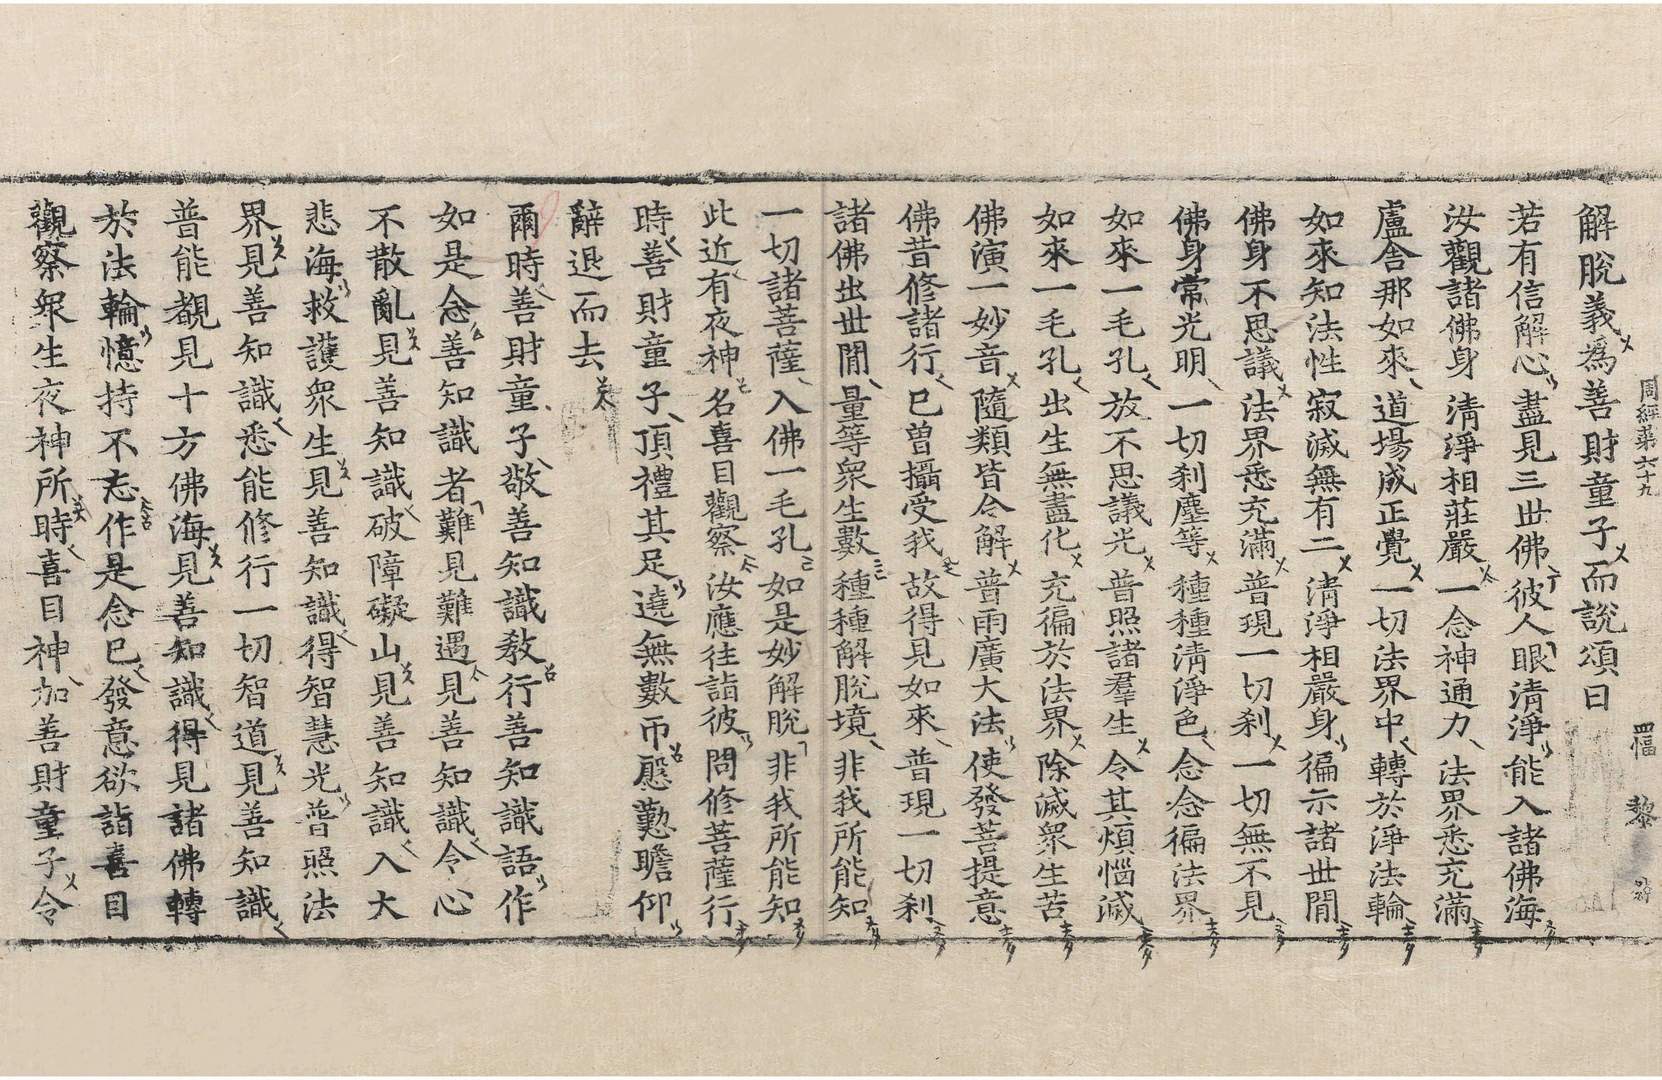 解脫義爲善財童子而說頌曰
周經第六十九
四幅
黎
若有信解心盡見三世佛彼人眼清淨能入諸佛海
汝觀諸佛身清淨相莊嚴一念神通力法界悉充滿
盧舍那如來道場成正覺一切法界中轉於淨法輪
如來知法性寂滅無有二清淨相嚴身徧示諸世間
佛身不思議法界悉充滿普現一切刹一切無不見
佛身常光明一切刹塵等種種清淨色念念徧法界
如來一毛孔放不思議光普照諸羣生令其煩惱滅
如來一毛孔出生無盡化充徧於法界除滅衆生苦
佛演一妙音隨類皆令解普雨廣大法使發菩提意
佛昔修諸行已曾攝受我故得見如來普現一切刹
諸佛出世間量等衆生數種種解脫境非我所能知
一切諸菩薩入佛一毛孔如是妙解脫非我所能知
此近有夜神名喜目觀察汝應往詣彼問修菩薩行
時善財童子頂禮其足遶無數帀慇懃瞻仰
辭退而去
爾時善財童子敬善知識敎行善知識語作
如是念善知識者難見難遇見善知識令心
不散亂見善知識破障礙山見善知識入大
悲海救護衆生見善知識得智慧光普照法
界見善知識悉能修行一切智道見善知識
普能覩見十方佛海見善知識得見諸佛轉
於法輪憶持不忘作是念已發意欲詣喜目
觀察衆生夜神所時喜目神加善財童子令